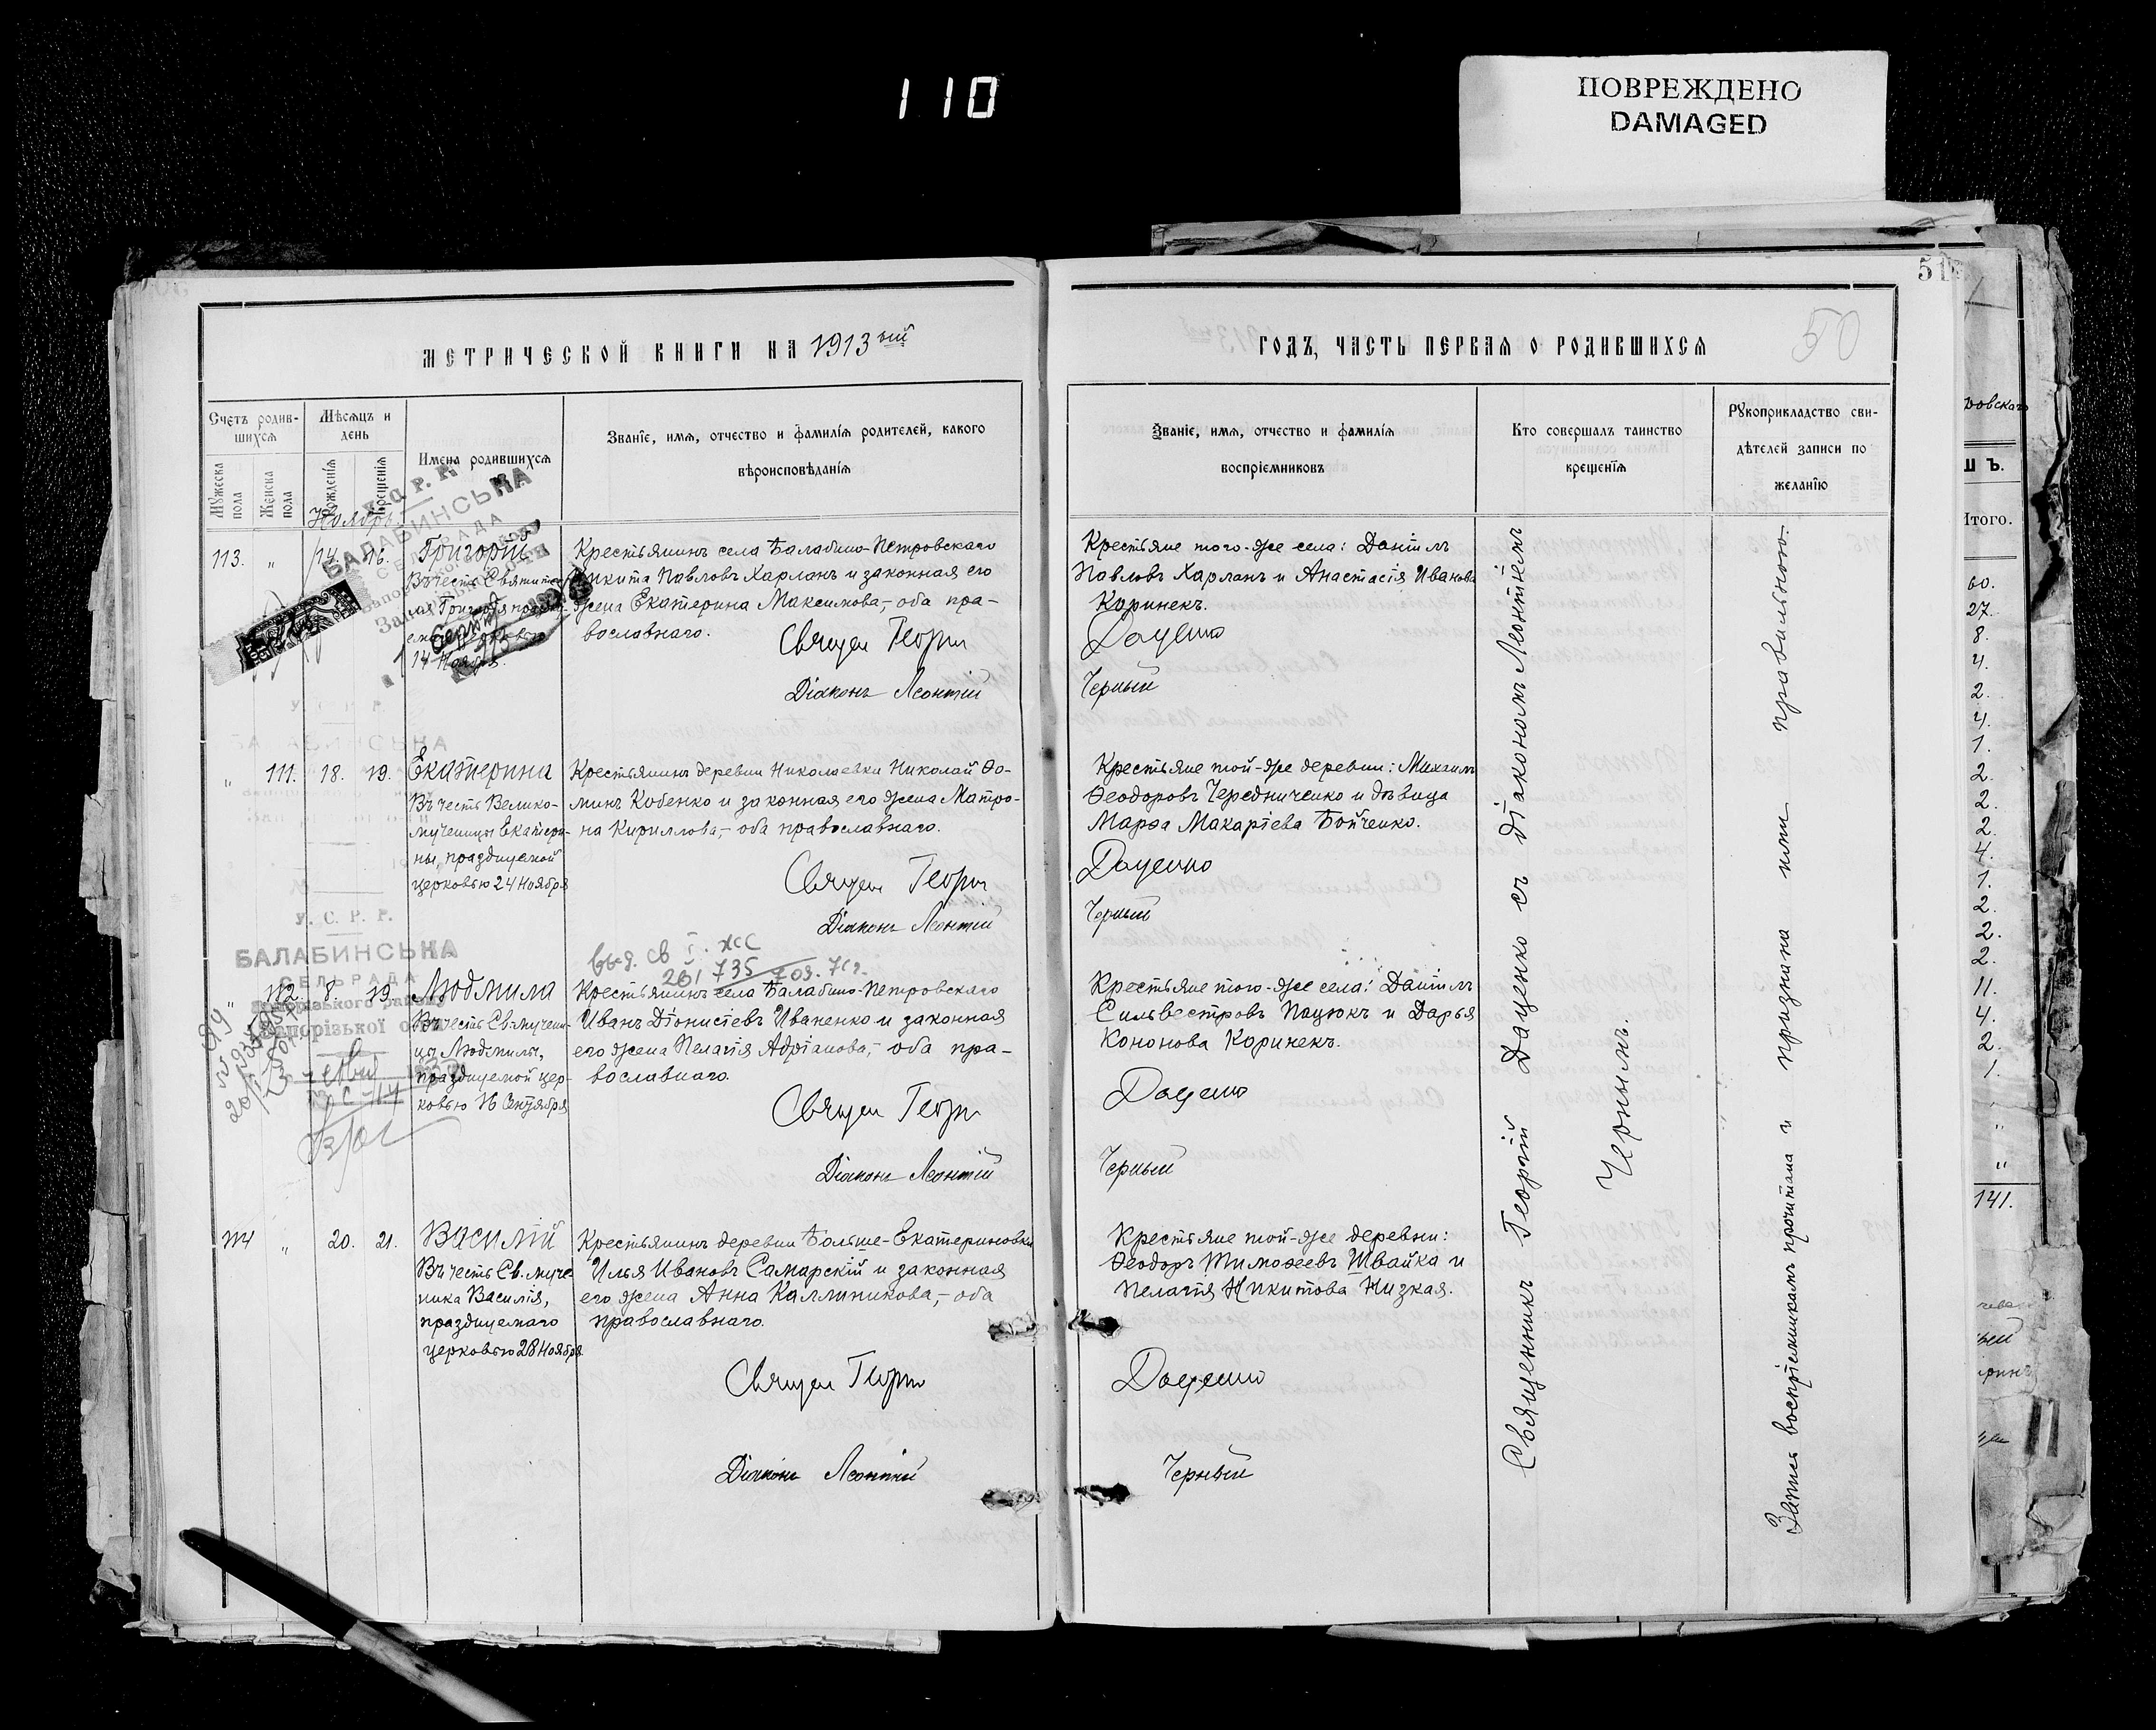 110
ПОВРЕЖДЕНО
DAMAGED
51
50
МЕТРИЧЕСКОЙ КНИГИ НА 1913ый
ГОДЪ, ЧАСТЬ ПЕРВАЯ О РОДИВШИХСЯ
Счетъ родив-
шихся
Мужеска пола
Женска пола
Мѣсяцъ и
день
Рожденія
Крещенія
Имена родившихся
Званіе, имя, отчество и фамилія родителей, какого
вѣроисповѣданія
Званіе, имя, отчество и фамилія
воспріемниковъ
Кто совершалъ таинство
крещенія
Рукоприкладство сви-
дѣтелей записи по
желанію
Ноябрь
113. „ 14. 16. Григорій
Въ честь Святите-
ля Григорія
14 Ноября.
Крестьянинъ села Балабино-Петровскаго
Никита Павловъ Харланъ и законная его
жена Екатерина Максимова,- оба пра-
вославнаго.
Священ Георги
Діаконъ Леонтій
Крестьяне того-же села: Даніилъ
Павловъ Харланъ и Анастасія Иванова
Коринекъ.
Даценко
Черный
„ 111. 18. 19. Екатерина
Въ честь Велико-
мученицы Екатери-
ны, празднуемой
церковью 24 Ноября
Крестьянинъ деревни Николаевки Николай Ѳо-
минъ Кобенко и законная его жена Матро-
на Кириллова,- оба православнаго.
Священ Георги
Діаконъ Леонтій
Крестьяне той-же деревни: Михаилъ
Ѳеодоровъ Чередниченко и дѣвица
Марѳа Макаріева Бойченко.
Даценко
Черный
У. С. Р. Р.
БАЛАБИНСЬКА
СЕЛЬРАДА
261 735
„ 112. 8. 19. Людмила
Въ честь Св. мучени-
цы Людмилы,
празднуемой цер-
ковью 16 Сентября
Крестьянинъ села Балабино-Петровскаго
Иванъ Діонисіевъ Иваненко и законная
его жена Пелагія Адріанова,- оба пра-
вославнаго.
Священ Георги
Діаконъ Леонтій
Крестьяне того-же села: Даніилъ
Сильвестровъ Пацюкъ и Дарья
Кононова Коринекъ.
Даценко
Черный
114 „ 20. 21. Василій
Въ честь Св. муче-
ника Василія,
празднуемаго
церковью 28 Ноября
Крестьянинъ деревни Больше-Екатериновки
Илья Ивановъ Самарскій и законная
его жена Анна Каллиникова,- оба
православнаго.
Священ Георги
Діаконъ Леонтій
Крестьяне той-же деревни:
Ѳеодоръ Тимоѳеевъ Швайка и
Пелагія Никитова Низкая.
Даценко
Черный
Священникъ Георгій Даценко съ діакономъ Леонтіемъ
Чернымъ.
Запись воспріемникамъ прочитана и признана ими правильною.
Итого.
60.
27.
8.
4.
2.
4.
1.
2.
2.
2.
4.
1.
2.
2.
2.
11.
4.
2.
1.
„
„
141.